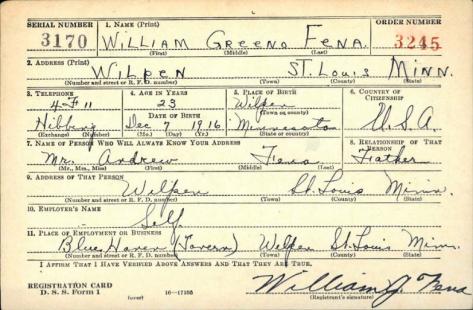 SERIAL NUMBER 1. NAME (Print) ORDER NUMBER
3170 WILLIAM GREENO FENA. 3245
(First) (Middle) (Last)
2. ADDRESS (Print)
WILPEN ST. LOUIS MINN.
(Number and street or R. F. D. number) (Town) (County) (State)
3. TELEPHONE 4. AGE IN YEARS 5. PLACE OF BIRTH 6. COUNTRY OF CITIZENSHIP
4-F 11 23 Wilpen
DATE OF BIRTH (Town or county)
Hibbing Dec 7 1916 Minnesota U.S.A.
(Exchange) (Number) (Mo.) (Day) (Yr.) (State or country)
7. NAME OF PERSON WHO WILL ALWAYS KNOW YOUR ADDRESS 8. RELATIONSHIP OF THAT PERSON
Mr. Andrew Fena Father
(Mr., Mrs., Miss) (First) (Middle) (Last)
9. ADDRESS OF THAT PERSON
Wilpen St. Louis Minn.
(Number and street or R. F. D. number) (Town) (County) (State)
10. EMPLOYER'S NAME
Self
11. PLACE OF EMPLOYMENT OR BUSINESS
Blue Haven (Tavern) Wilpen St. Louis Minn.
(Number and street or R. F. D. number) (Town) (County) (State)
I AFFIRM THAT I HAVE VERIFIED ABOVE ANSWERS AND THAT THEY ARE TRUE.
REGISTRATION CARD William G. Fena
D. S. S. Form 1 (over) 16—17105 (Registrant's signature)